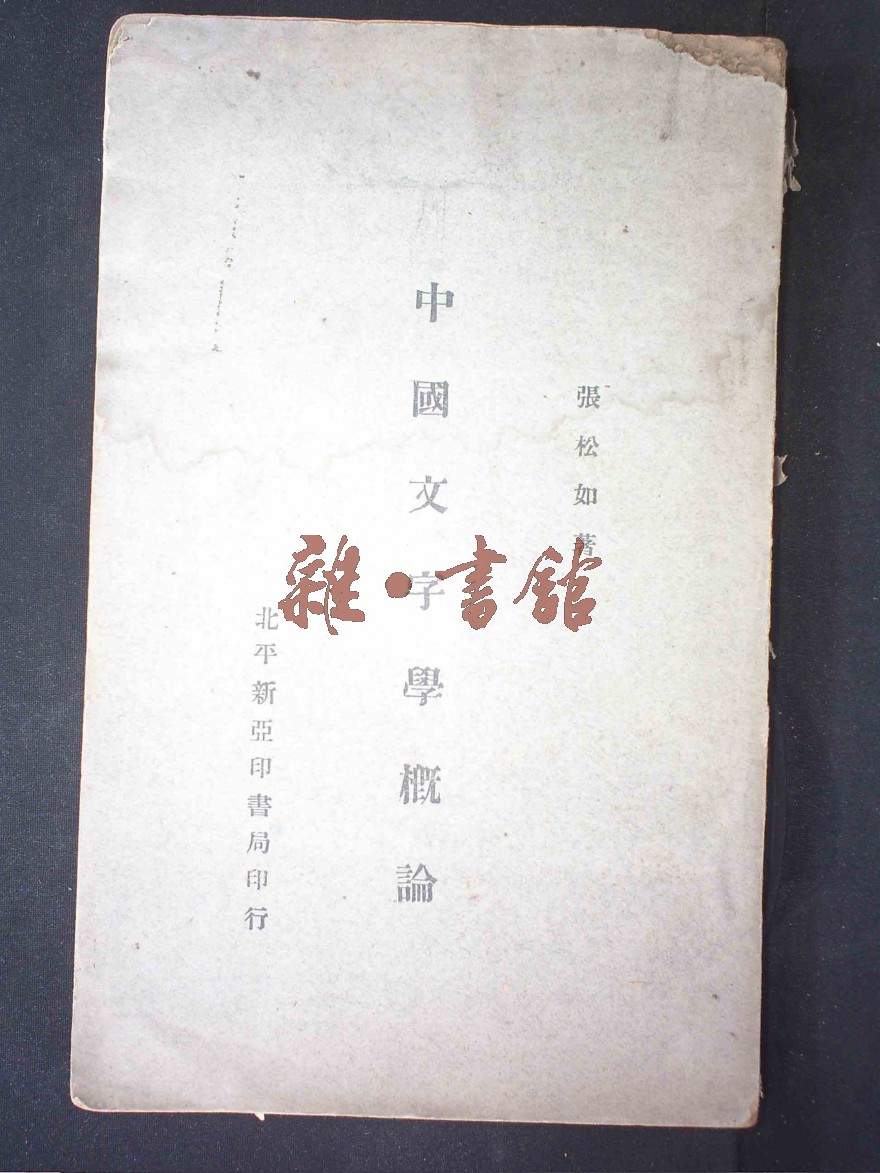 張松如著
中國文字學概論
北平新亞印書局印行
雜·書館